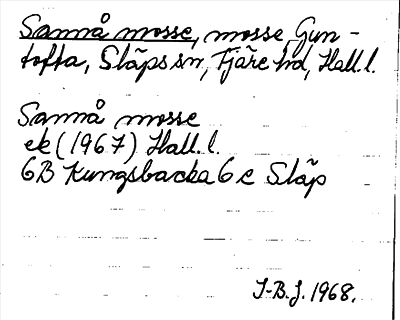 Sannå mosse, mosse, Gun-
tofta, Släps sn, Fjäre hd, Hall.l.
Sannå mosse
ek (1967) Hall.l.
6B Kungsbacka 6 c Släp
I-B.J. 1968.